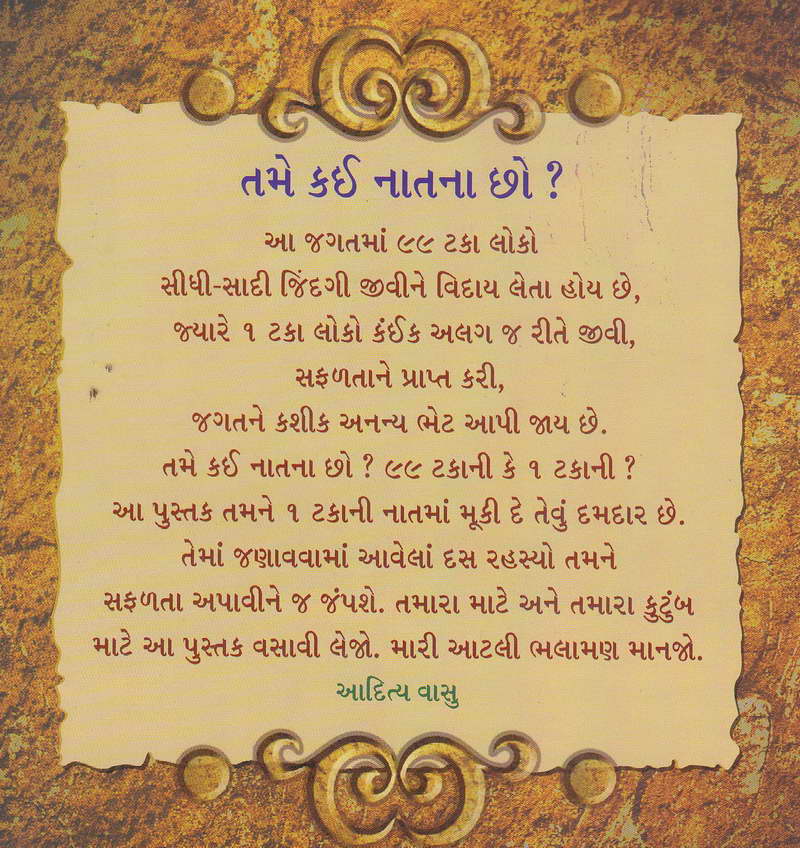 તમે કઈ નાતના છો ?
આ જગતમાં ૯૯ ટકા લોકો
સીધી-સાદી જિંદગી જીવીને વિદાય લેતા હોય છે,
જ્યારે ૧ ટકા લોકો કંઈક અલગ જ રીતે જીવી,
સફળતાને પ્રાપ્ત કરી,
જગતને કશીક અનન્ય ભેટ આપી જાય છે.
તમે કઈ નાતના છો ? ૯૯ ટકાની કે ૧ ટકાની ?
આ પુસ્તક તમને ૧ ટકાની નાતમાં મૂકી દે તેવું દમદાર છે.
તેમાં જણાવવામાં આવેલાં દસ રહસ્યો તમને
સફળતા અપાવીને જ જંપશે. તમારા માટે અને તમારા કુટુંબ
માટે આ પુસ્તક વસાવી લેજો. મારી આટલી ભલામણ માનજો.
આદિત્ય વાસુ